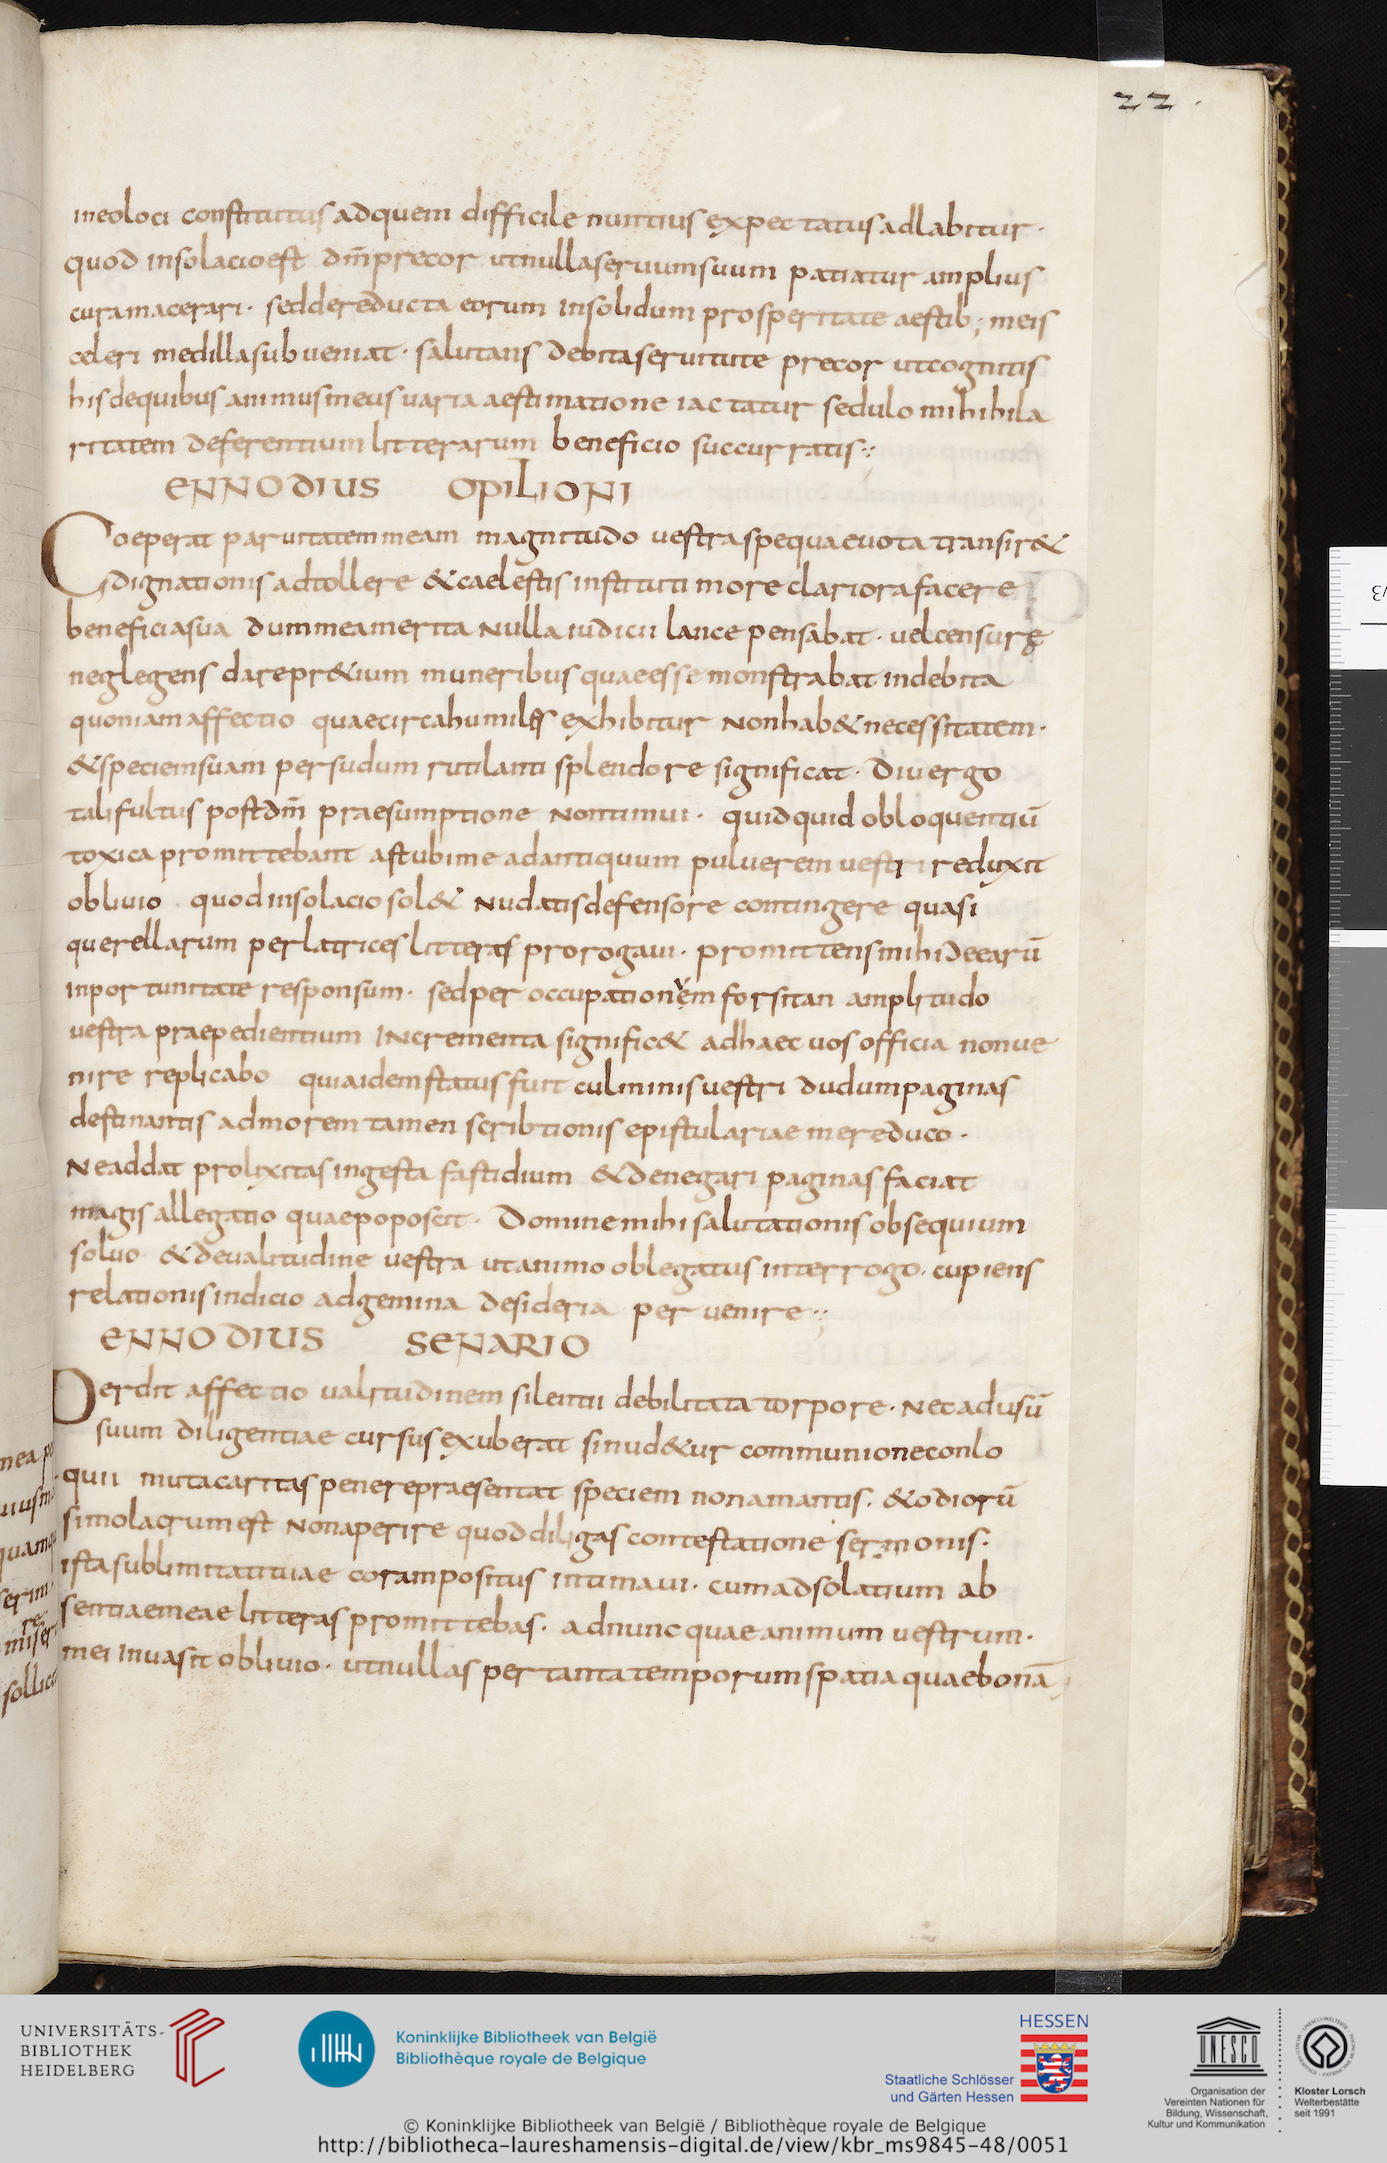 22.
in eo loci constitutus ad quem difficile nuntius expectatus adlabitur.
quod in solacio est dm̄ precor ut nulla seruum suum patiatur amplius
cura macerari. sed de reducta eorum in solidum prosperitate aestib; meis
celeri medilla subueniat. salutans debita seruitute precor ut cognitis
his de quibus animus meus uaria aestimatione iactatur sedulo mihi hila
ritatem deferentium litterarum beneficio succurratis:;
ENNODIUS OPILIONI
Coeperat paruitatem meam magnitudo uestra spe quae uota transir&
dignationis adtollere & caelestis instituti more clariora facere
beneficia sua dum mea merita nulla iudicii lance pensabat. uel censurę
neglegens dare pr&ium muneribus quae esse monstrabat indebita
quoniam affectio quae circa humiles exhibitur non hab& necessitatem.
& speciem suam per sudum rutilanti splendore significat. Diu ergo
tali fultus post dm̄ praesumptione non timui. quidquid obloquentiū
toxica promittebant ast ubi me ad antiquum puluerem uestri reduxit
obliuio. quod in solacio sol& nudatis defensore contingere quasi
querellarum perlatrices litteras prorogaui. promittens mihi de earū
inportunitate responsum. sed per occupationem forsitan amplitudo
uestra praepedientium incrementa signific& ad haec uos officia non ue
nire replicabo quia idem status fuit culminis uestri dudum paginas
destinantis ad morem tamen scribtionis epistulariae me reduco.
Ne addat prolixitas ingesta fastidium & denegari paginas faciat
magis allegatio quae poposcit. Domine mihi salutationis obsequium
soluo & de ualitudine uestra ut animo oblegatus interrogo. cupiens
relationis indicio ad gemina desideria peruenire:;
ENNODIUS SENARIO
Perdit affectio ualitudinem silentii debilitata torpore. Nec ad usū
suum diligentiae cursus exuberat si nud&ur communione conlo
quii muta caritas pene repraesentat speciem non amantis. & odiorū
simolacrum est non aperire quod diligas contestatione sermonis.
ista sublimitati tuae coram positus intimaui. cum ad solatium ab
sentiae meae litteras promittebas. ad nunc quae animum uestrum.
mei inuasit obliuio. ut nullas per tanta temporum spatia quae bonā
UNIVERSITÄTS-
BIBLIOTHEK
HEIDELBERG
Koninklijke Bibliotheek van België
Bibliothèque royale de Belgique
HESSEN
Staatliche Schlösser
und Gärten Hessen
UNESCO
Organisation der
Vereinten Nationen für
Bildung, Wissenschaft,
Kultur und Kommunikation
Kloster Lorsch
Welterbestätte
seit 1991
© Koninklijke Bibliotheek van België / Bibliothèque royale de Belgique
http://bibliotheca-laureshamensis-digital.de/view/kbr_ms9845-48/0051